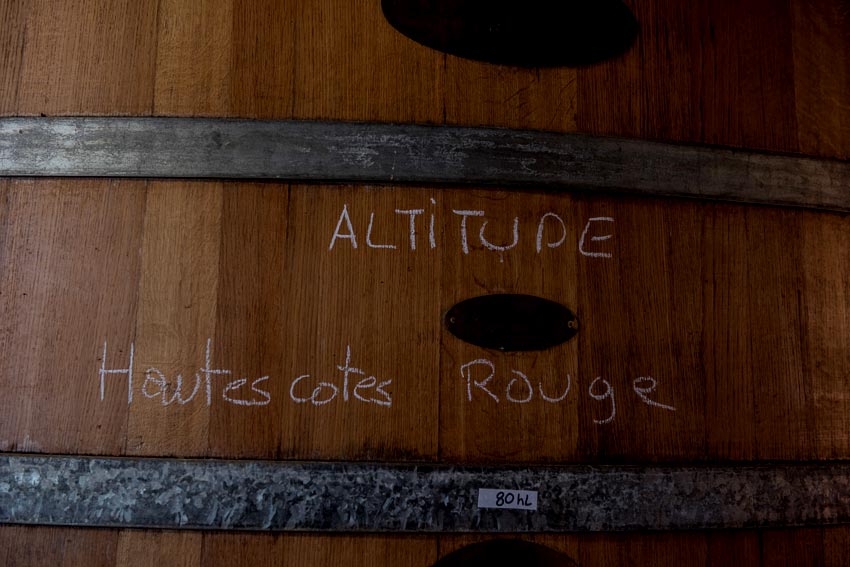 ALTITUDE
Hautes cotes Rouge
80hL